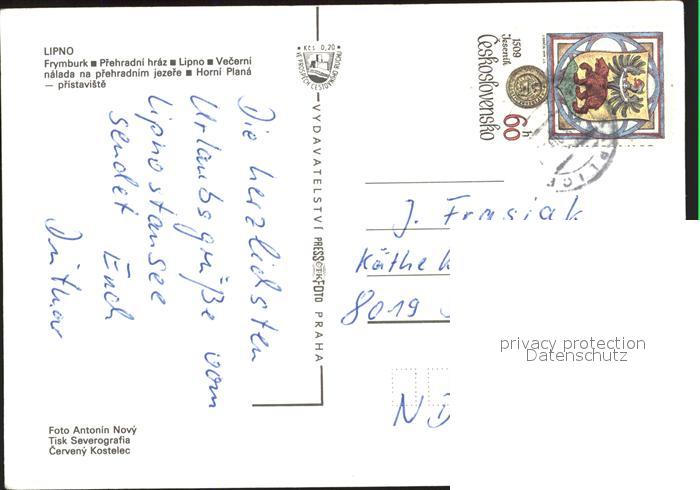 LIPNO
Frymburk ■ Přehradní hráz ■ Lipno ■ Večerní
nálada na přehradním jezeře ■ Horní Planá
— přístaviště
Kčs 0,20
VE PROSPĚCH CESTOVNÍHO RUCHU
1509
Jeseník
Československo
60 h
PLICE
Die herzlichsten
Urlaubsgrüße vom
Lipnostausee
sendet Euch
VYDAVATELSTVÍ PRESSFOTO PRAHA
J. Frasiak
Käthe
8019
privacy protection
Datenschutz
Foto Antonín Nový
Tisk Severografia
Červený Kostelec